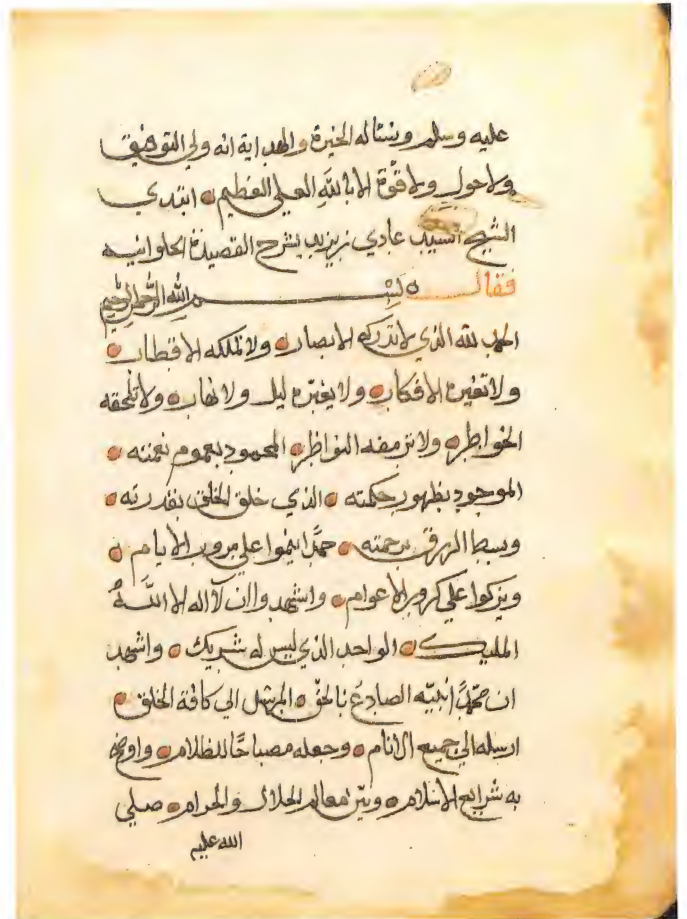 عليه وسلم ويسئاله الخيرة والهداية انه ولي التوفيق
ولا حول ولا قوة الا بالله العلي العظيم ابتدي
الشيخ عادي بن يزيد بشرح القصيدة الحلوانيه
فقال بسم الله الرحمن الرحيم
الحمد لله الذي لا تدركه الابصار ولا تملكه الاقطار
ولا تغيره الافكار ولا يغيره ليل ولا نهار ولا تلحقه
الخواطر ولا ترمقه النواظر المحمود بعموم نعمته
الموجود بظهور حكمته الذي خلق الخلق بقدرته
وبسط الرزق برحمته حمدًا ينموا علي مرور الايام
ويزكوا علي كرور الاعوام واشهدوا ان لا اله الا الله
المليك الواحد الذي ليس له شريك واشهد
ان محمدًا نبيّه الصادع بالحق المرسل الي كافة الخلق
ارسله الي جميع الانام وجعله مصباحًا للظلام واوضح
به شرايع الاسلام وبيّن معالم الحلال والحرام صلي
الله عليه